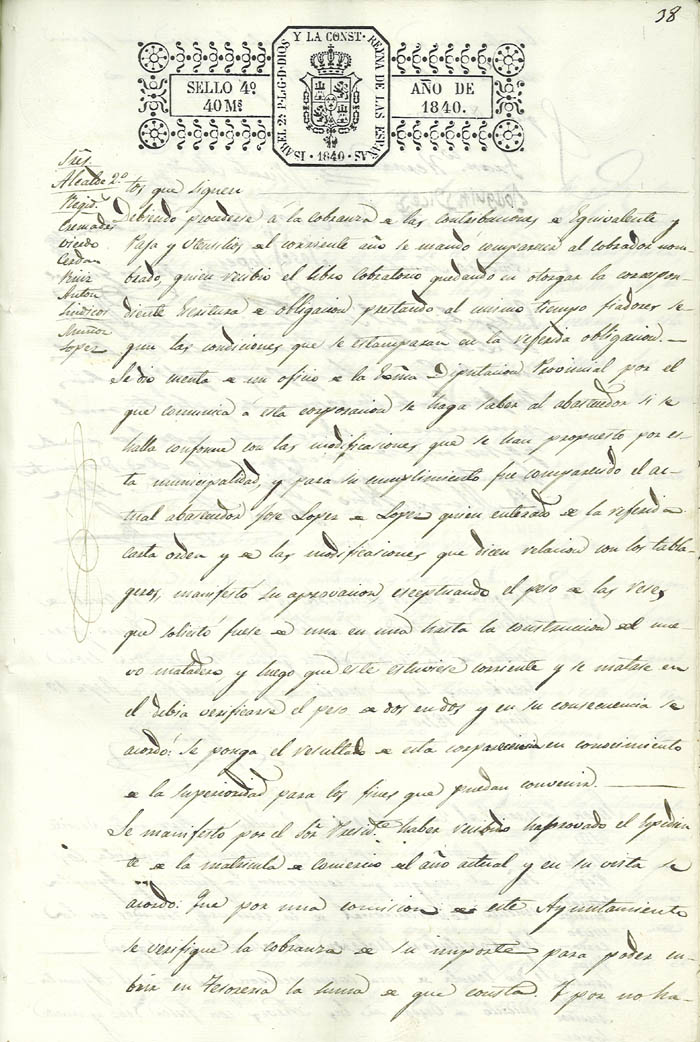 38
ISABEL 2ª P.L.G.D.DIOS Y LA CONST. REYNA DE LAS ESPAÑAS
·1840·
SELLO 4º
40 Ms
AÑO DE
1840.
Sres.
Alcalde 2.º
Regid.s
Cremades
Viredo
Cerdan
Ruiz
Anton
Sindicos
Muñoz
Lopez
tos que siguen
Debiendo procederse á la cobranza de las contribuciones de Equivalente y
Paja y Utensilios del corriente año se mando comparecer al cobrador nom-
brado, quien recibio el libro cobratorio quedando en otorgar la correspon-
diente Escritura de obligacion prestando al mismo tiempo fiadores se-
gun las condiciones que se estamparan en la referida obligacion. —
Se dio cuenta de un oficio de la Exma Diputacion Provincial por el
que comunica á esta corporacion se haga saber al abastecedor si se
halla conforme con las modificaciones que se han propuesto por es-
ta municipalidad, y para su cumplimiento fue comparecido el ac-
tual abastecedor José Lopez de Lopez quien enterado de la referida
carta orden y de las modificaciones que dicen relacion con los tabla-
geros, manifestó su aprovacion, esceptuando el peso de las reses,
que solicitó fuese de una en una hasta la construccion del nue-
vo matadero y luego que este estuviese corriente y se matase en
el debia verificarse el peso de dos en dos y en su consecuencia se
acordó: Se ponga el resultado de esta comparecencia en conocimiento
de la superioridad para los fines que puedan convenir. —
Se manifesto por el Sor Presid.te haber recibido haprovado el Espedien-
te de la matricula de comercio del año actual y en su vista se
acordo: Que por una comision de este Ayuntamiento
se verifique la cobranza de su importe para poder cu-
brir en Tesoreria la suma de que consta. Y por no ha-